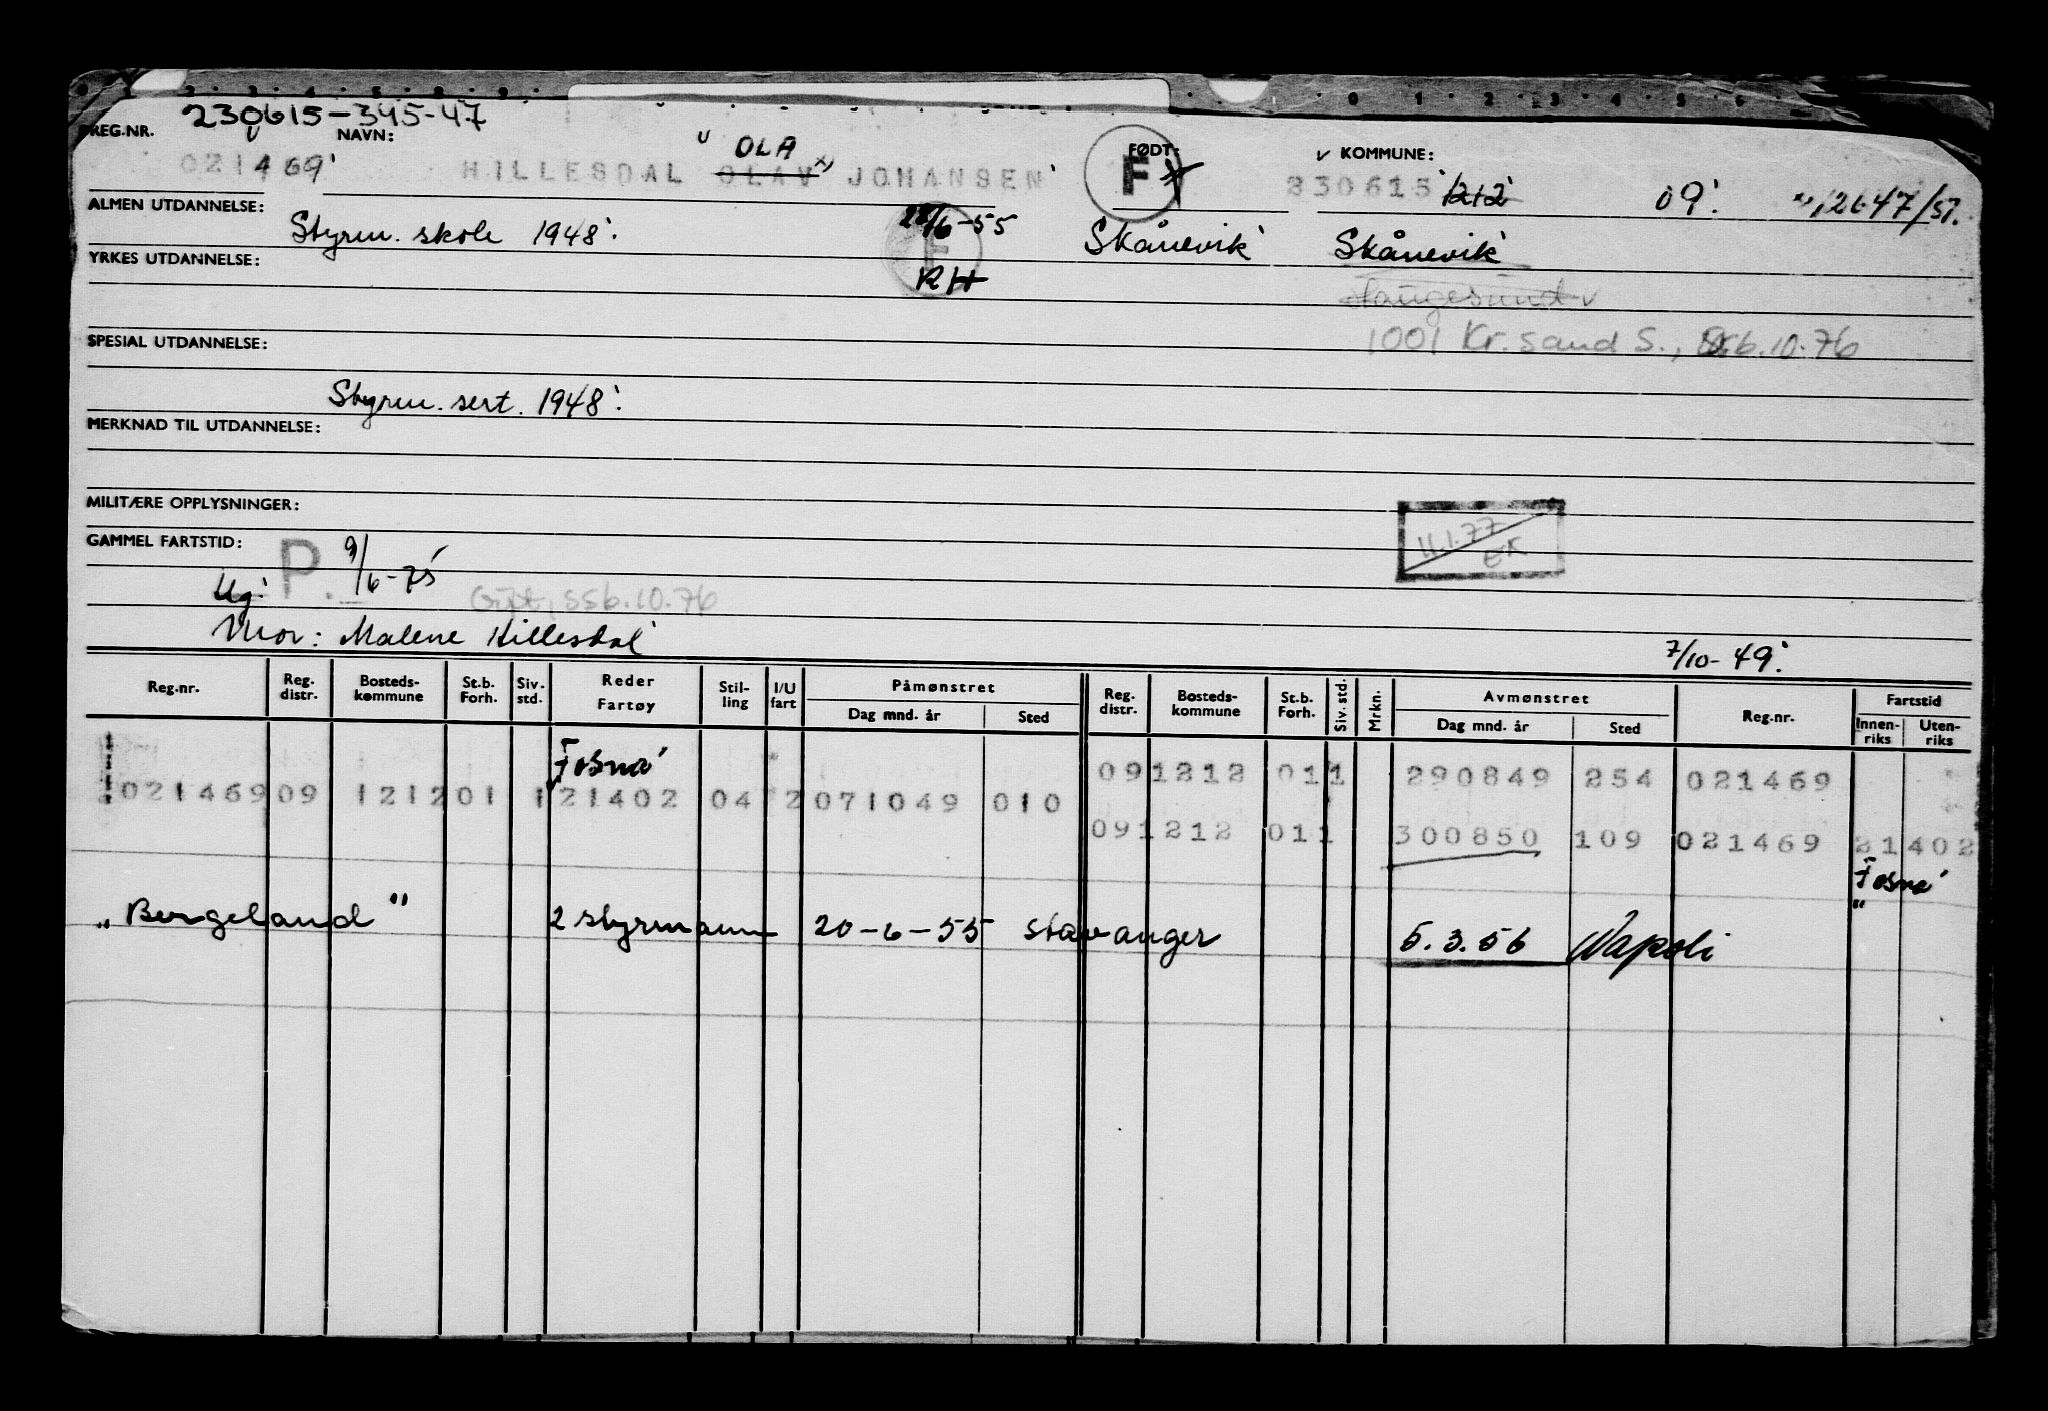 230615-345-47
REG.NR. NAVN: FØDT: KOMMUNE:
OLA
021469 HILLESDAL OLAV x) JOHANSEN F 230615 1212 09. 12647/51.
ALMEN UTDANNELSE: Styrm. skole 1948. 28/6-55 Skånevik Skånevik
YRKES UTDANNELSE: F RH
Haugesund
1001 Kr.sand S., 6.10.76
SPESIAL UTDANNELSE:
Styrm. sert. 1948.
MERKNAD TIL UTDANNELSE:
MILITÆRE OPPLYSNINGER:
11.1.77
EK
GAMMEL FARTSTID: P. 9/6-75
Ug. Gift, SS 6.10.76
Mor: Malene Hillesdal
7/10-49.
Reg.nr. Reg. distr. Bosteds-kommune St.b. Forh. Siv. std. Reder Fartøy Stil-ling I/U fart Påmønstret Dag mnd. år Sted Reg. distr. Bosteds-kommune St.b. Forh. Siv. std. Mrkn. Avmønstret Dag mnd. år Sted Reg.nr. Fartstid Innen-riks Uten-riks
Fosna 09 1212 01 1 290849 254 021469
021469 09 1212 01 1 21402 04 2 071049 010
09 1212 01 1 300850 109 021469 21402
Fosna
"Bergeland" 2 styrmann 20-6-55 Stavanger 5.3.56 Napoli "